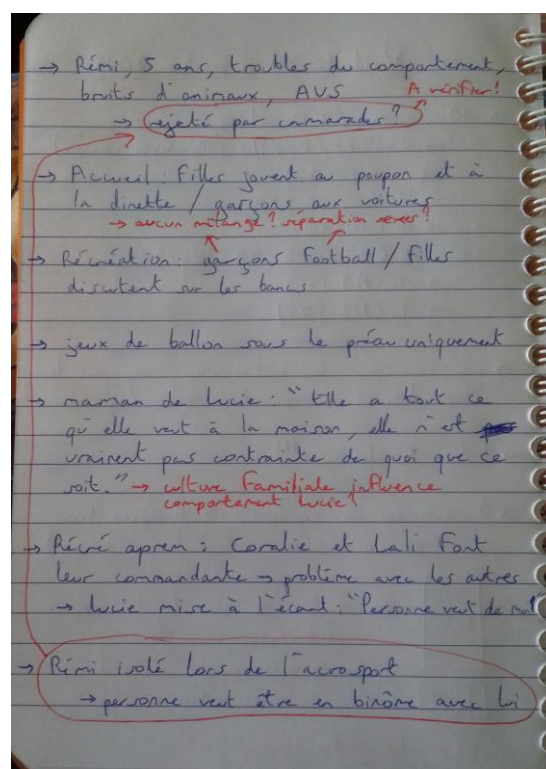 → Rémi, 5 ans, troubles du comportement,
bruits d'animaux, AVS A vérifier!
→ rejeté par camarades?
→ Accueil : Filles jouent au poupon et à
la dinette / garçons aux voitures
→ aucun mélange? séparation sexes?
→ Récréation : garçons Football / Filles
discutent sur les bancs
→ jeux de ballon sous le préau uniquement
→ maman de Lucie : "Elle a tout ce
qu'elle veut à la maison, elle n'est
vraiment pas contrainte de quoi que ce
soit." → culture Familiale influence
comportement Lucie?
→ Récré aprem : Coralie et Lali Font
leur commandante → problème avec les autres
→ Lucie mise à l'écart : "Personne veut de moi"
→ Rémi isolé lors de l'acrosport
→ personne veut être en binôme avec lui